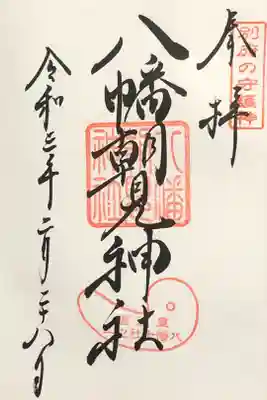 奉拝
別府の守護神
八幡朝見神社
八幡朝見神社
令和三年二月二十八日